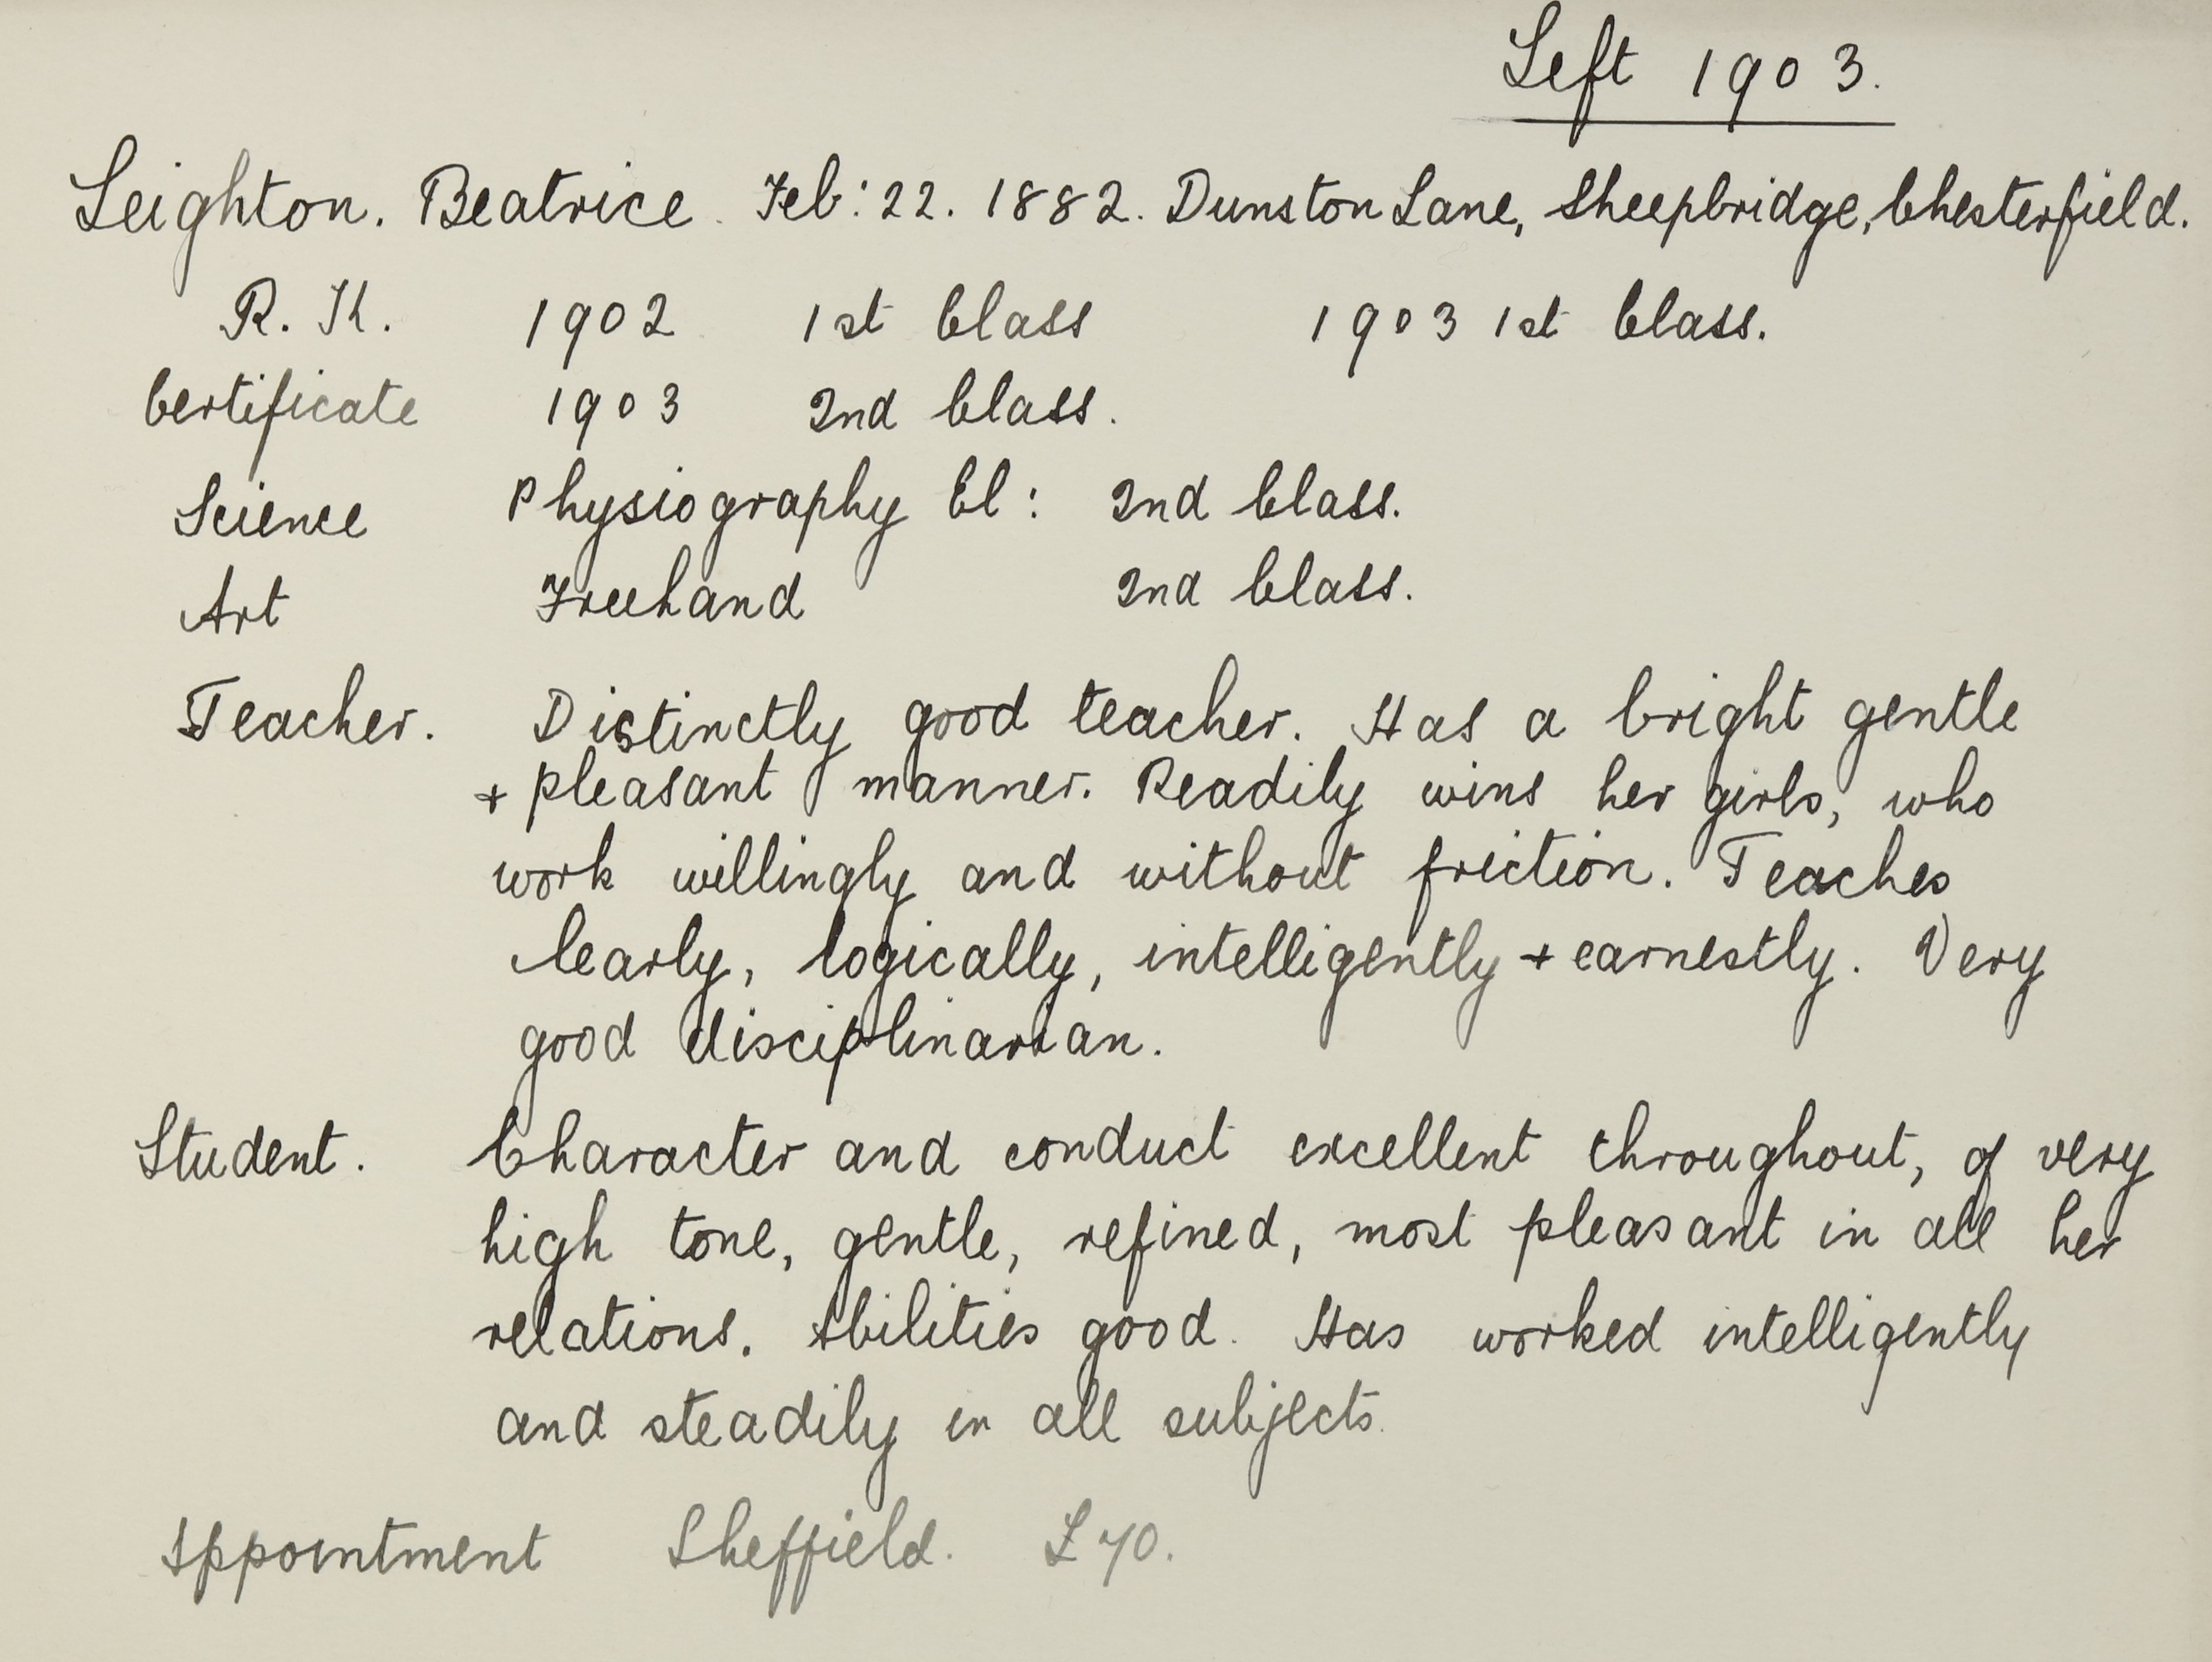 Left 1903.
Leighton. Beatrice. Feb: 22. 1882. Dunston Lane, Sheepbridge, Chesterfield.
R. K. 1902 1st Class 1903 1st Class.
Certificate 1903 2nd Class.
Science Physiography El: 2nd Class.
Art Freehand 2nd Class.
Teacher. Distinctly good teacher. Has a bright gentle
+ pleasant manner. Readily wins her girls, who
work willingly and without friction. Teaches
clearly, logically, intelligently + earnestly. Very
good disciplinarian.
Student. Character and conduct excellent throughout, of very
high tone, gentle, refined, most pleasant in all her
relations. Abilities good. Has worked intelligently
and steadily in all subjects.
Appointment Sheffield. £70.